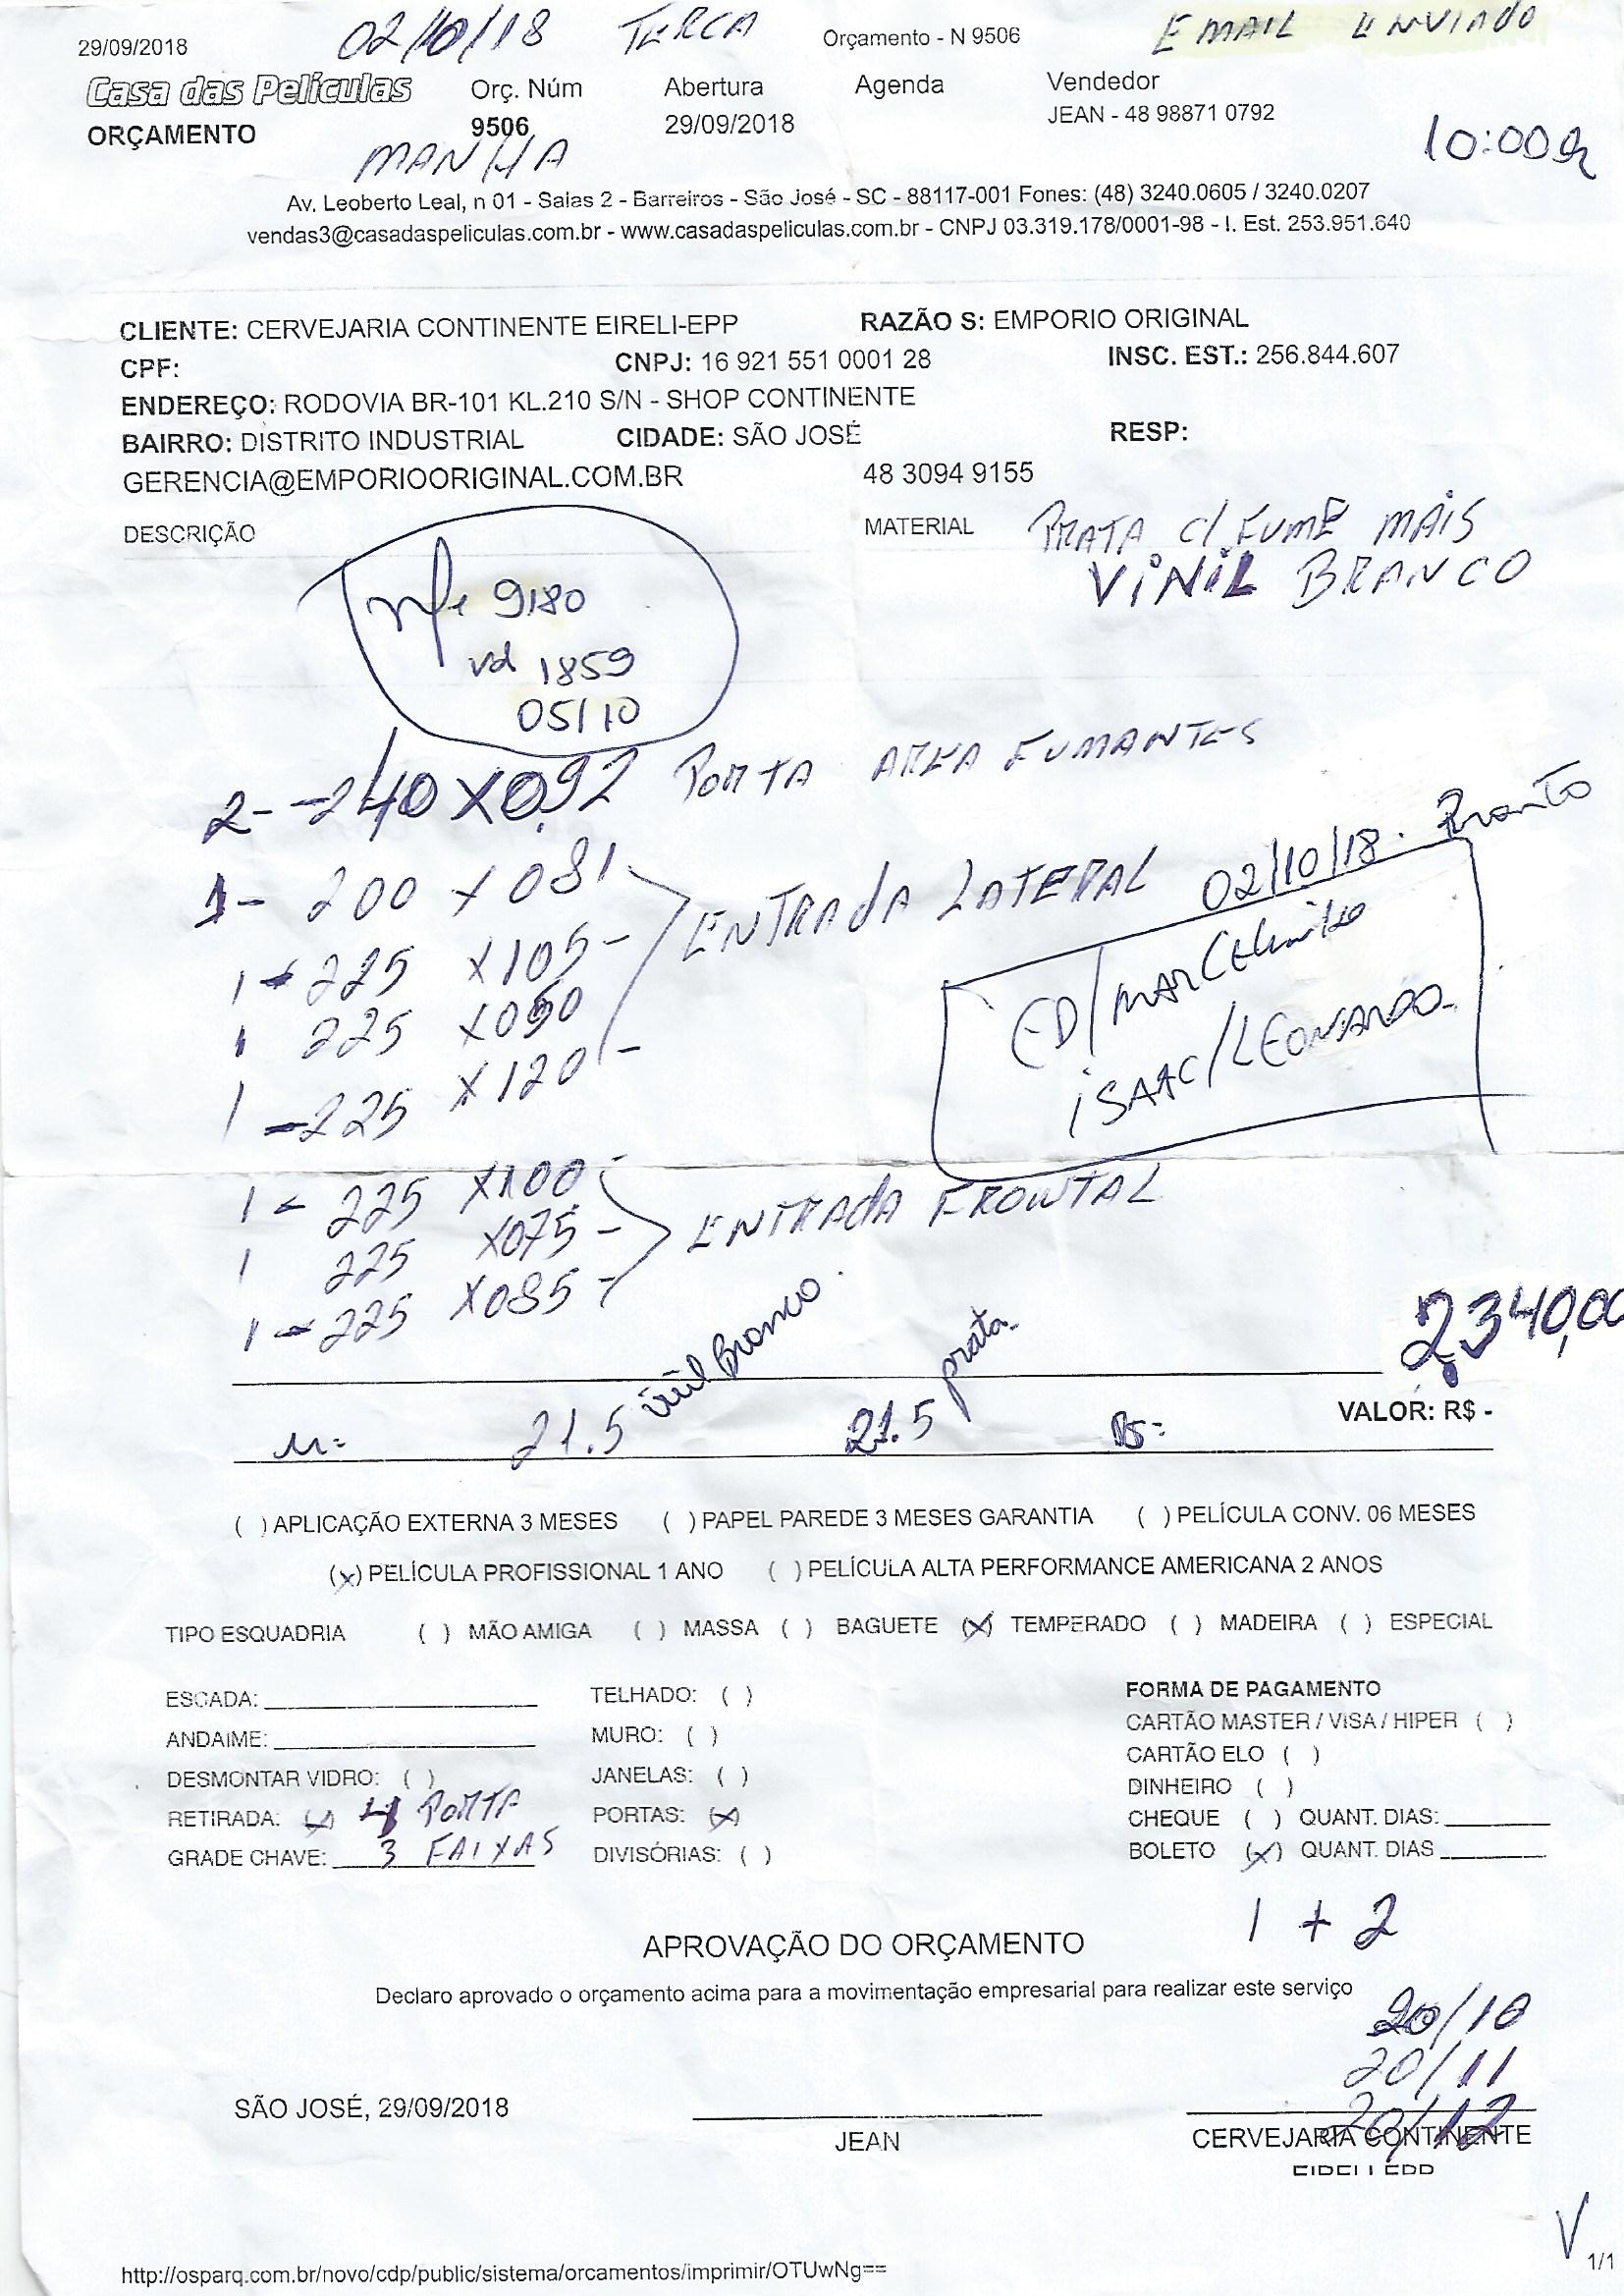 29/09/2018 02/10/18 TERCA Orçamento - N 9506 EMAIL ENVIADO
Casa das Películas Orç. Núm Abertura Agenda Vendedor
ORÇAMENTO 9506 29/09/2018 JEAN - 48 98871 0792
MANHA 10:00h
Av. Leoberto Leal, n 01 - Salas 2 - Barreiros - São José - SC - 88117-001 Fones: (48) 3240.0605 / 3240.0207
vendas3@casadaspeliculas.com.br - www.casadaspeliculas.com.br - CNPJ 03.319.178/0001-98 - I. Est. 253.951.640
CLIENTE: CERVEJARIA CONTINENTE EIRELI-EPP RAZÃO S: EMPORIO ORIGINAL
CPF: CNPJ: 16 921 551 0001 28 INSC. EST.: 256.844.607
ENDEREÇO: RODOVIA BR-101 KL.210 S/N - SHOP CONTINENTE
BAIRRO: DISTRITO INDUSTRIAL CIDADE: SÃO JOSÉ RESP:
GERENCIA@EMPORIOORIGINAL.COM.BR 48 3094 9155
DESCRIÇÃO MATERIAL PRATA C/ FUMÊ MAIS
VINIL BRANCO
nfe 9180
vd 1859
05/10
2- -240 X 0,92 PORTA AREA FUMANTES
1- 200 X 081
1- 225 X105- ENTRADA LATERAL
1 225 X050
1 -225 X120 -
02/10/18. Pronto
ED/MARCELinho
iSAAC/LEONARDO-
1- 225 X100-
1 225 X075- ENTRADA FRONTAL
1- 225 X085-
2.340,00
VALOR: R$ -
M= 21.5 vinil Branco. 21.5 prata. R$=
( ) APLICAÇÃO EXTERNA 3 MESES ( ) PAPEL PAREDE 3 MESES GARANTIA ( ) PELÍCULA CONV. 06 MESES
(x) PELÍCULA PROFISSIONAL 1 ANO ( ) PELÍCULA ALTA PERFORMANCE AMERICANA 2 ANOS
TIPO ESQUADRIA ( ) MÃO AMIGA ( ) MASSA ( ) BAGUETE (X) TEMPERADO ( ) MADEIRA ( ) ESPECIAL
ESCADA: TELHADO: ( ) FORMA DE PAGAMENTO
ANDAIME: MURO: ( ) CARTÃO MASTER / VISA / HIPER ( )
DESMONTAR VIDRO: ( ) JANELAS: ( ) CARTÃO ELO ( )
RETIRADA: (x) 4 PORTA PORTAS: (X) DINHEIRO ( )
GRADE CHAVE: 3 FAIXAS DIVISÓRIAS: ( ) CHEQUE ( ) QUANT. DIAS:
BOLETO (x) QUANT. DIAS
1 + 2
APROVAÇÃO DO ORÇAMENTO
Declaro aprovado o orçamento acima para a movimentação empresarial para realizar este serviço
20/10
20/11
20/12
SÃO JOSÉ, 29/09/2018
JEAN CERVEJARIA CONTINENTE
EIRELI EPP
V
http://osparq.com.br/novo/cdp/public/sistema/orcamentos/imprimir/OTUwNg== 1/1